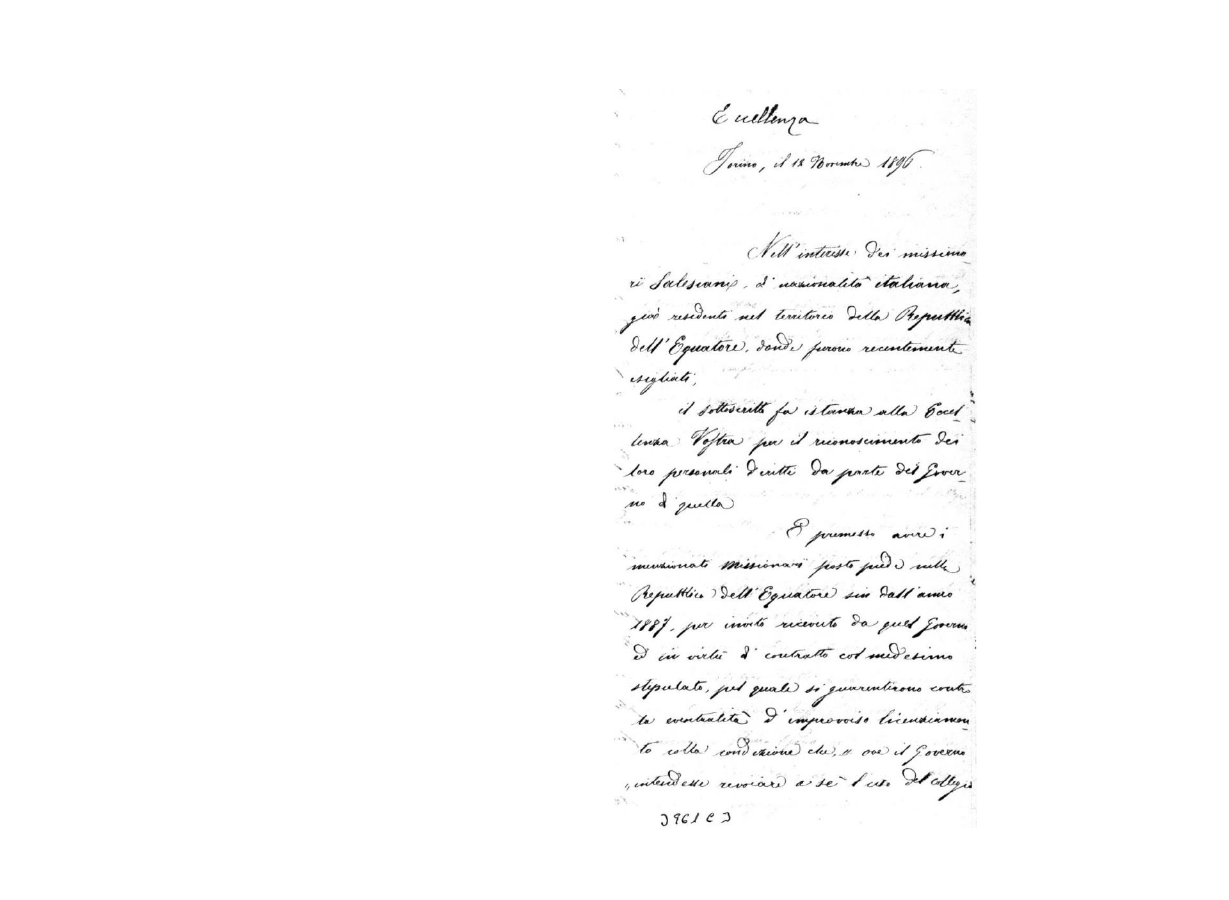 Eccellenza
Torino, il 18 Novembre 1896.
Nell'interesse dei missiona-
ri Salesiani, di nazionalità italiana,
già residenti nel territorio della Repubblica
dell'Equatore, donde furono recentemente
esigliati,
il sottoscritto fa istanza alla Eccel-
lenza Vostra per il riconoscimento dei
loro personali diritti da parte del Gover-
no di quella
È premesso avere i
menzionati missionari posto piede nella
Repubblica dell'Equatore sin dall'anno
1887, per invito ricevuto da quel Governo
ed in virtù di contratto col medesimo
stipulato, pel quale si guarentirono contro
la eventualità d'improvviso licenziamen-
to colla condizione che, " ove il Governo
" intendesse revocare a sè l'uso del collegio